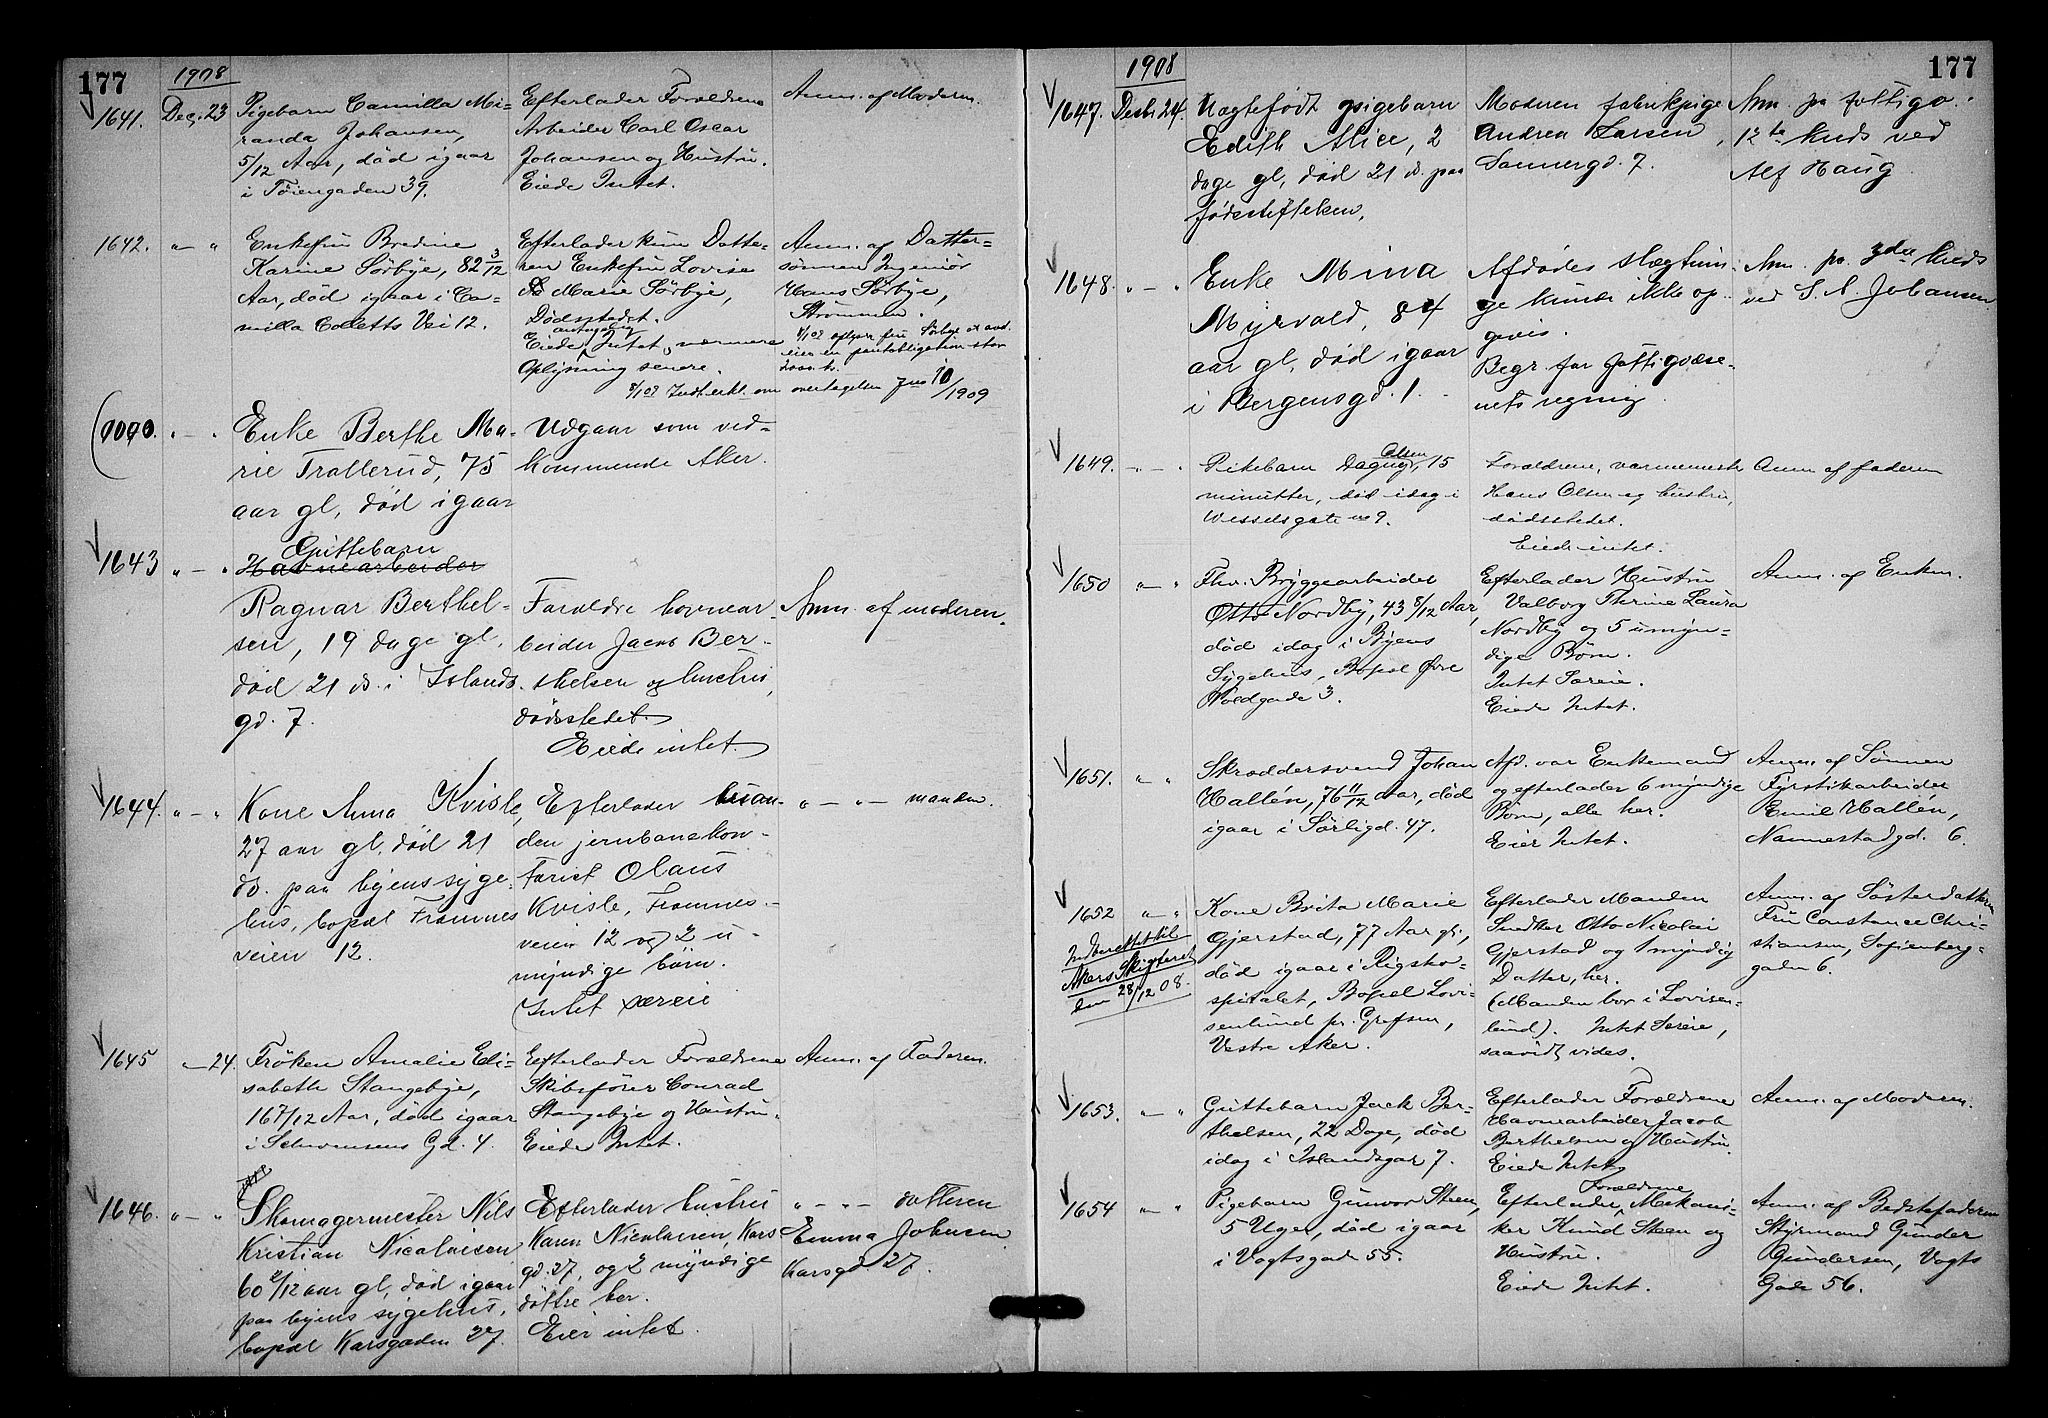 177
1908
1641. Dec. 23
Pigebarn Camilla Mi-
randa Johansen,
5/12 Aar, död igaar
i Töiengaden 39.
Efterlader Forældrene
Arbeider Carl Oscar
Johansen og Hustru.
Eiede Intet.
Anm. af Moderen.
1642. " — "
Enkefru Bredine
Karine Sörbye, 82 3/12
Aar, död igaar i Ca-
milla Colletts Vei 12.
Efterlader kun Datte-
ren Enkefru Lovise
Marie Sörbye,
Dödsstedet.
Eiede antagelig Intet, nærmere
Oplysning senere.
Anm. af Datter-
sönnen Ingeniör
Hans Sörbye,
Strömmen.
8/1 09 oplyser fru Sörbye at avd.
eier en pantobligation stor
2000 kr.
8/1 09 Indb. erkl. om overtagelsen 10/1909
(1090. " — "
Enke Berthe Ma-
rie Trallerud, 75
aar gl, död igaar
Udgaar som ved-
kommende Aker.
1643 " — "
Guttebarn
Havnearbeider
Ragnar Berthel-
sen, 19 dage gl.
död 21 ds. i Islands.
gd. 7.
Forældre havnear
beider Jacob Ber-
thelsen og hustru,
dödsstedet.
Eiede intet.
Anm. af moderen.
1644. " — "
Kone Anna Kvisle,
27 aar gl. död 21
ds. paa byens syge-
hus, bopæl Framnes
veien 12.
Efterlader man-
den jernbanekon-
torist Olaus
Kvisle, Framnes-
veien 12 og 2 u-
myndige börn.
Intet særeie
" — " — manden.
1645 — 24.
Fröken Amalie Eli-
sabeth Stangebye,
16 7/12 Aar, död igaar
i Schwensens Gd. 4.
Efterlader Forældrene
Skibsförer Conrad
Stangebye og Hustru.
Eiede Intet.
Anm. af Faderen.
1646. " — "
Skomagermester Nils
Kristian Nicolaisen
60 2/12 aar gl, död igaar
paa byens sygehus,
bopæl Karsgaden 27.
Efterlader hustru
Karen Nicolaisen, Kars
gd. 27, og 2 myndige
döttre her.
Eier intet.
" — " — datteren
Emma Johnsen
Karsgd 27.
177
1908
1647. Decbr 24.
Uægtefödt pigebarn
Edith Alice, 2
dage gl, död 21 ds. paa
födestiftelsen,
Moderen fabrikpige
Andrea Larsen,
Sannergd. 7.
Anm. pr fattigv.
12te kreds ved
Alf Haug
1648. " — "
Enke Mina
Myrvold, 84
aar gl, död igaar
i Bergensgd. 1.
Afdödes slægtnin-
ge kunde ikke op-
gives.
Begr. for fattigvæse-
nets regning.
Anm. pr. kreds
ved S. A. Johansen
1649. " — "
Pikebarn Dagny Olsen, 15
minutter, död idag i
Wesselsgate no 9.
Forældrene, varmemester
Hans Olsen og hustru,
dödsstedet.
Eiede intet.
Anm af faderen
1650 " — "
Fhv. Bryggearbeider
Otto Nordby, 43 8/12 Aar,
död idag i Byens
Sygehus, Bopæl Övre
Voldgade 3.
Efterlader Hustru
Valborg Thrine Laura
Nordby og 5 umyn-
dige Börn.
Intet Særeie.
Eiede Intet.
Anm. af Enken.
1651. " "
Skræddersvend Johan
Hallén, 76 11/12 Aar, död
igaar i Sörligd. 47.
Afd. var Enkemand
og efterlader 6 myndige
Börn, alle her.
Eier Intet.
Anm. af Sönnen
Fyrstikarbeider
Emil Hallén,
Nannestadgd. 6.
1652 " — "
Indberettet til
Akers Skifteret
den 28/12 08.
Kone Brita Marie
Gjerstad, 77 Aar gl.,
död igaar i Rigsho-
spitalet, Bopæl Lovi-
senlund pr. Grefsen,
Vestre Aker.
Efterlader Manden
Snedker Otto Nicolai
Gjerstad og 1 myndig
Datter, her.
(Manden bor i Lovisen-
lund). Intet Særeie,
saavidt vides.
Anm. af Sösterdatteren
Fru Constance Chri-
stiansen, Sofienberg-
gaden 6.
1653. " — "
Guttebarn Jack Ber-
thelsen, 22 Dage, död
idag i Islandsgaden 7.
Efterlader Forældrene
Havnearbeider Jacob
Berthelsen og Hustru.
Eiede Intet
Anm. af Moderen.
1654 " — "
Pigebarn Gunvor Steen,
5 Uger, död igaar
i Vogtsgade 55.
Efterlader Forældrene, Mekani-
ker Knud Steen og
Hustru.
Eiede Intet.
Anm. af Bedstefaderen
Styrmand Gunder
Gundersen, Vogts
Gade 56.